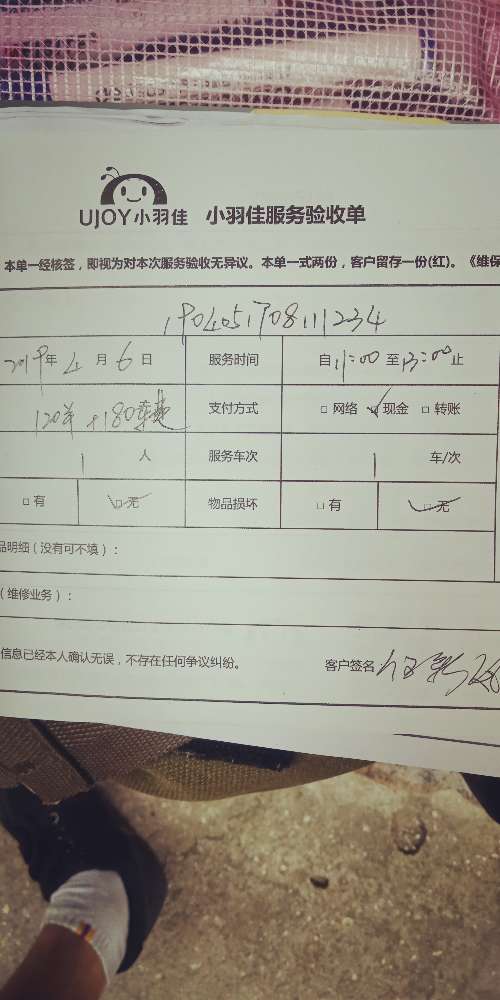 UJOY小羽佳 小羽佳服务验收单
本单一经核签，即视为对本次服务验收无异议。本单一式两份，客户留存一份(红)。《维保
190405170811234
2019年4月6日 服务时间 自11:00至13:00止
120羊+180车费 支付方式 □网络 □现金 □转账
1人 服务车次 1车/次
□有 □无 物品损坏 □有 □无
品明细（没有可不填）：
（维修业务）：
信息已经本人确认无误，不存在任何争议纠纷。 客户签名